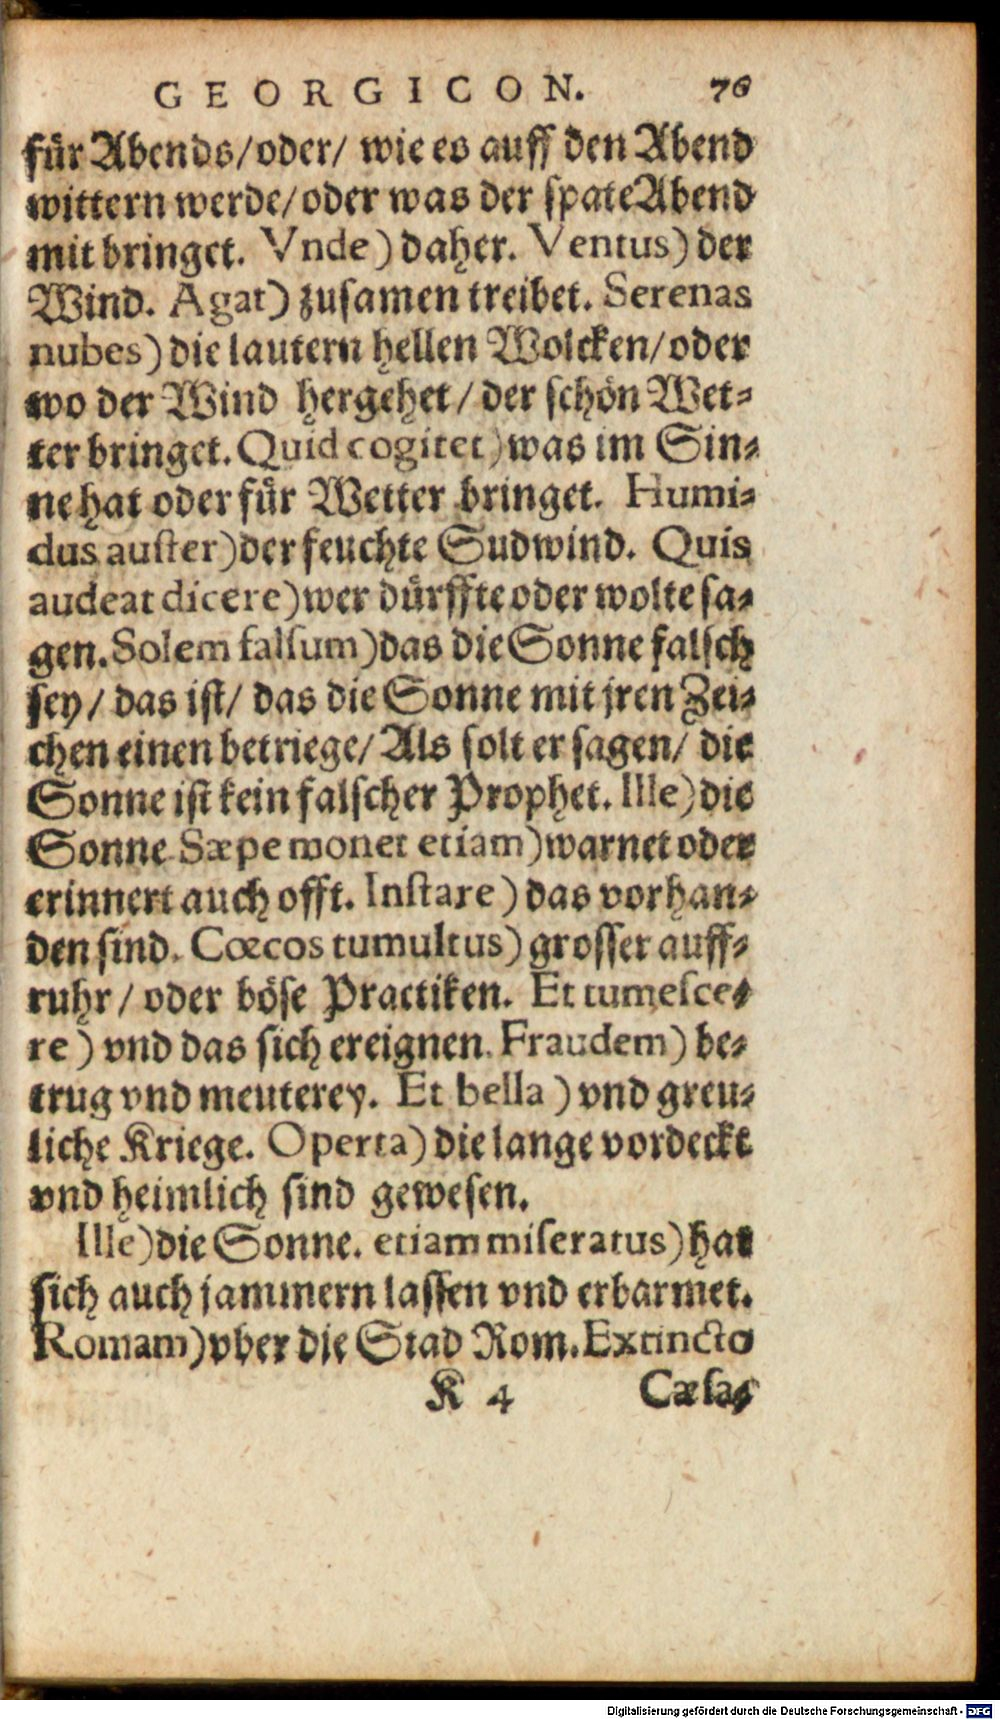 GEORGICON. 76
für Abends/oder/ wie es auff den Abend
wittern werde/oder was der spate Abend
mit bringet. Vnde) daher. Ventus) der
Wind. Agat) zusamen treibet. Serenas
nubes) die lautern hellen Wolcken/oder
wo der Wind hergehet/ der schön Wet-
ter bringet. Quid cogitet) was im Sin-
ne hat oder für Wetter bringet. Humi-
dus auster) der feuchte Sudwind. Quis
audeat dicere) wer dürffte oder wolte sa-
gen. Solem falsum) das die Sonne falsch
sey/ das ist/ das die Sonne mit jren Zei-
chen einen betriege/ Als solt er sagen/ die
Sonne ist kein falscher Prophet. Ille) die
Sonne Sæpe monet etiam) warnet oder
erinnert auch offt. Instare) das vorhan-
den sind. Cœcos tumultus) grosser auff-
ruhr/ oder böse Practiken. Et tumesce-
re) vnd das sich ereignen. Fraudem) be-
trug vnd meuterey. Et bella) vnd greu-
liche Kriege. Operta) die lange vordeckt
vnd heimlich sind gewesen.
Ille) die Sonne. etiam miseratus) hat
sich auch jammern lassen vnd erbarmet.
Romam) vber die Stad Rom. Extincto
K 4 Cæsa-
Digitalisierung gefördert durch die Deutsche Forschungsgemeinschaft - DFG